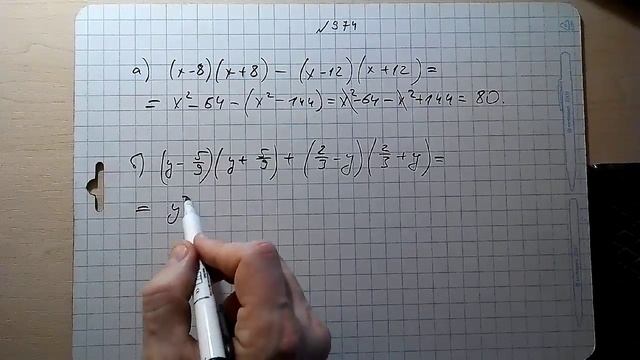 №374
а) (x-8)(x+8) - (x-12)(x+12) =
= x² - 64 - (x² - 144) = x² - 64 - x² + 144 = 80.
б) (y - 5/9)(y + 5/9) + (2/3 - y)(2/3 + y) =
= y²